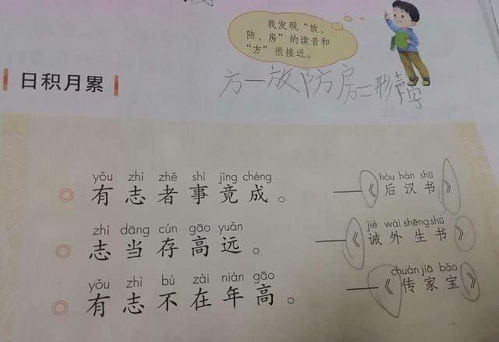 我发现“放、
防、房”的读音和
“方”很接近。
方一放防房二形声字
日积月累
yǒu zhì zhě shì jìng chéng
有志者事竟成。
hòu hàn shū
——《后汉书》
zhì dāng cún gāo yuǎn
志当存高远。
jiè wài shēng shū
——《诫外生书》
yǒu zhì bú zài nián gāo
有志不在年高。
chuán jiā bǎo
——《传家宝》